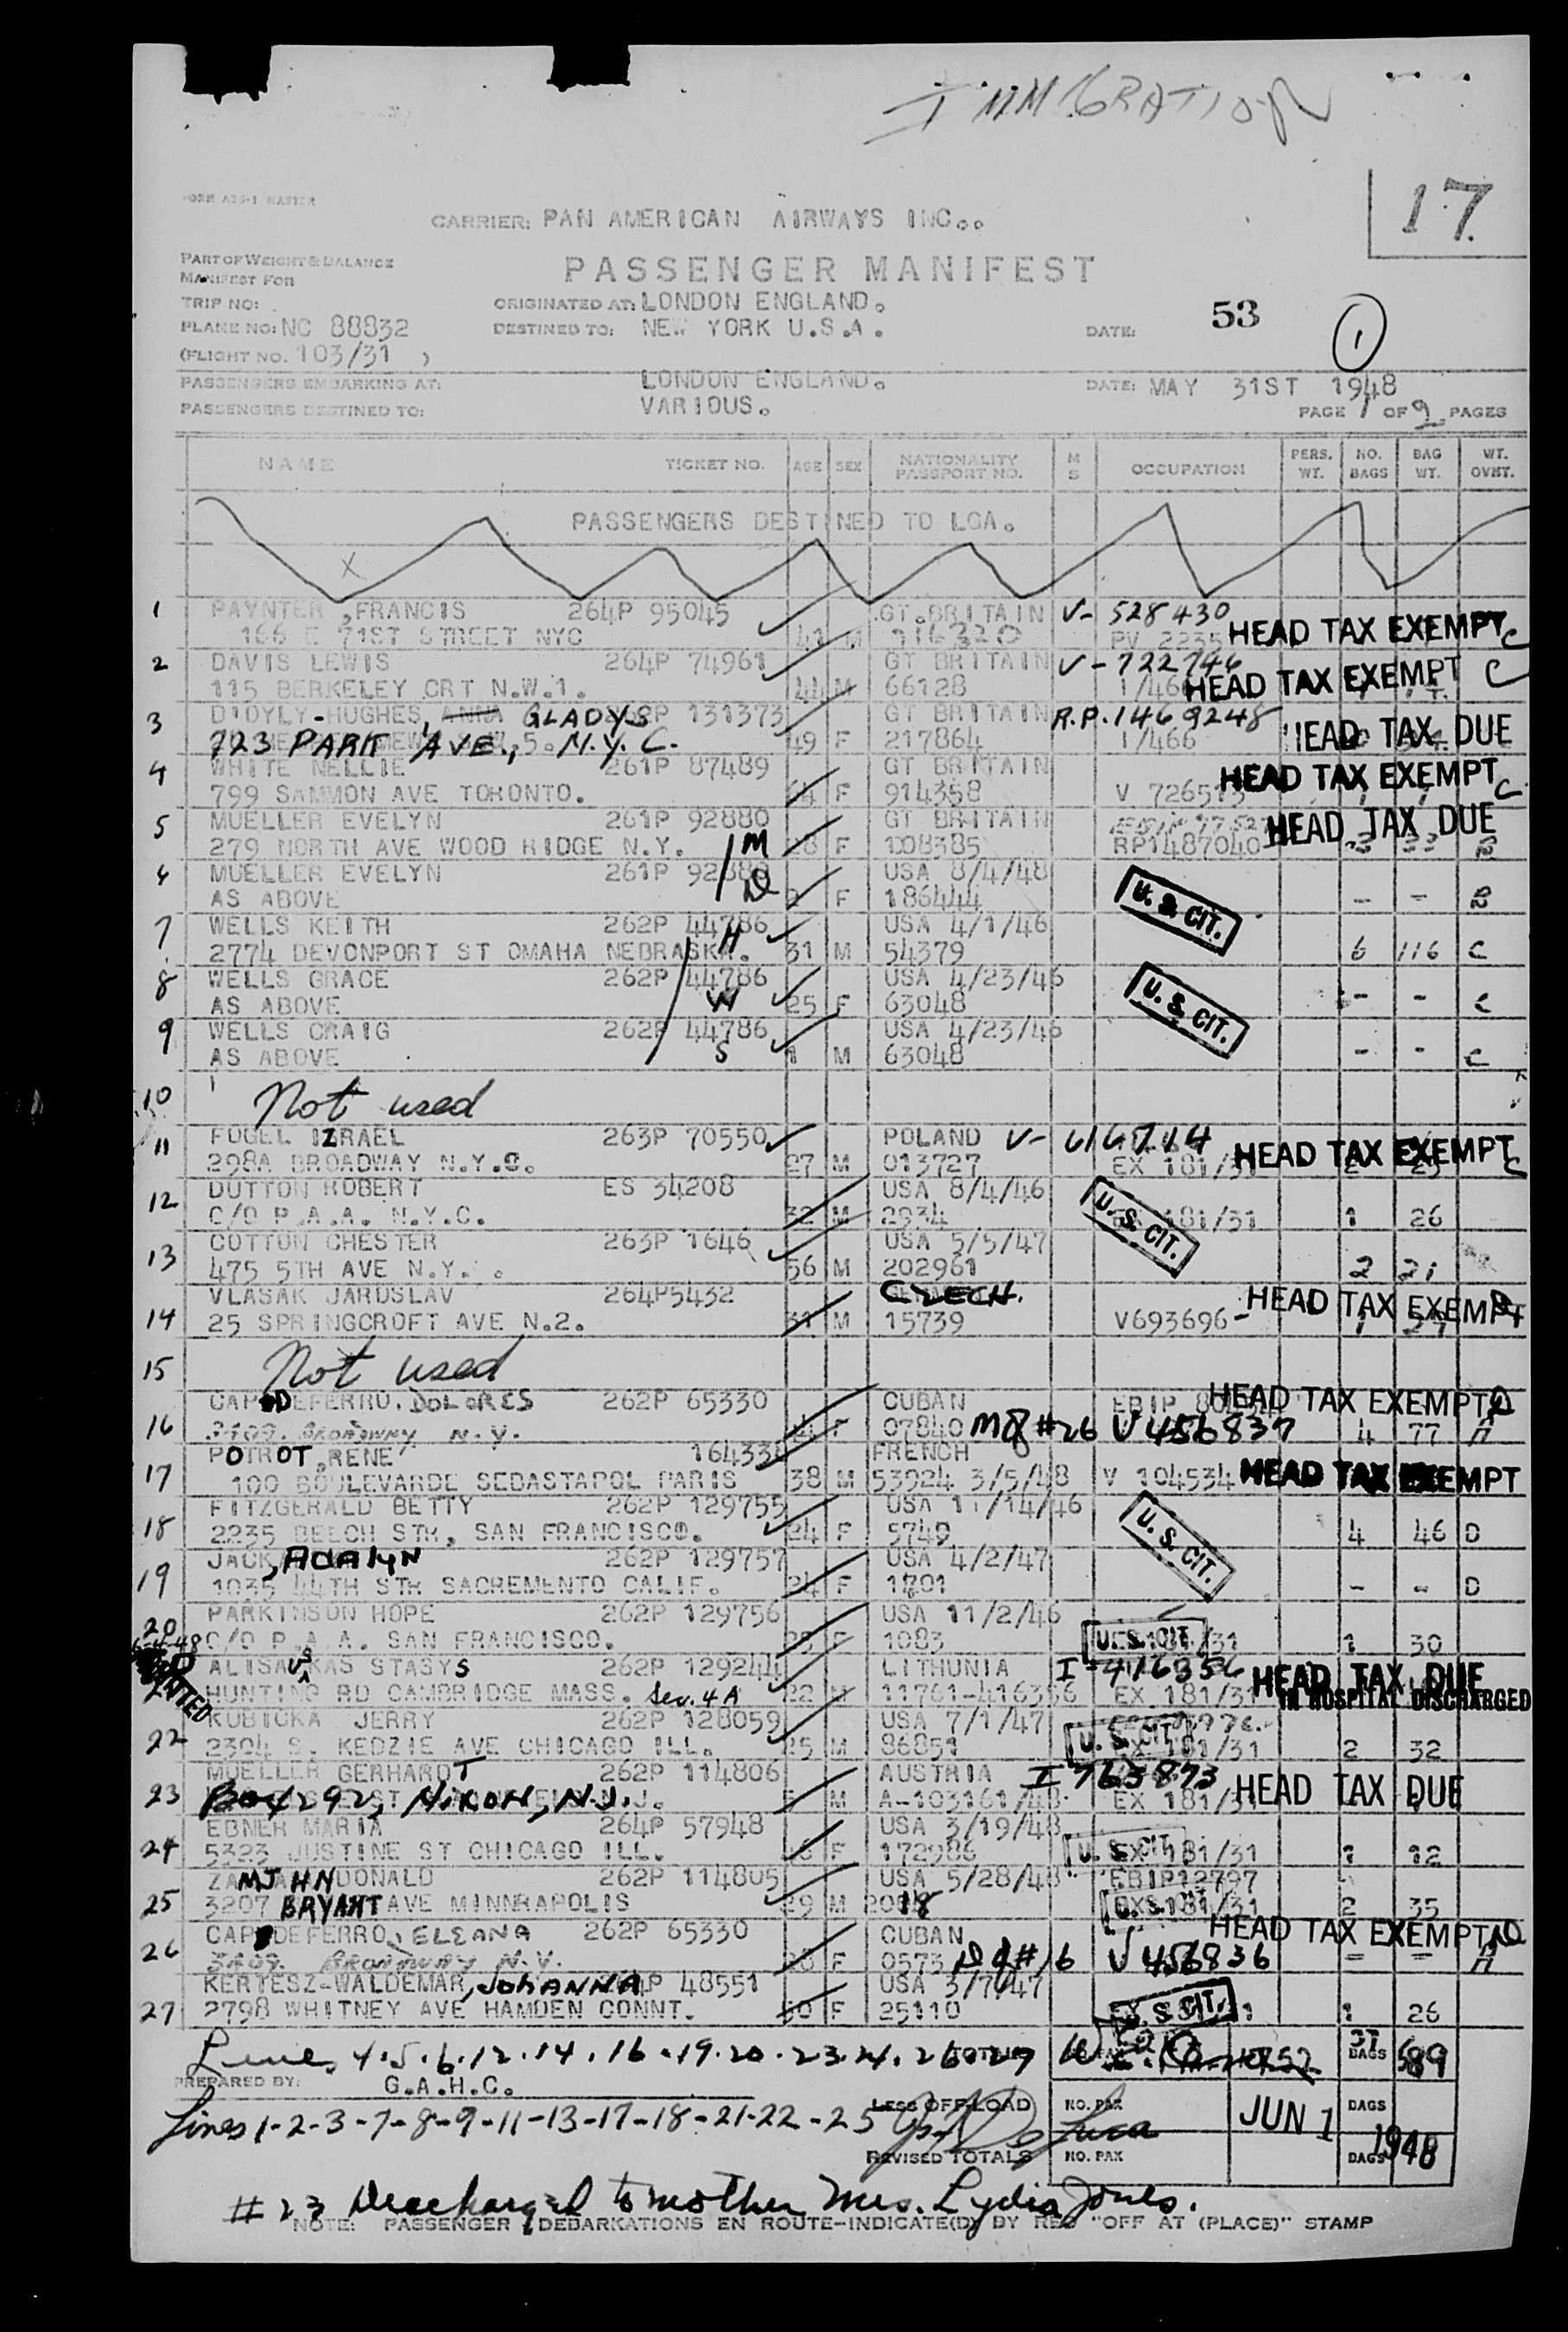 IMMIGRATION
17
FORM
CARRIER: PAN AMERICAN AIRWAYS INC..
PART OF WEIGHT & BALANCE
MANIFEST FOR
PASSENGER MANIFEST
TRIP NO: ORIGINATED AT: LONDON ENGLAND. 53
PLANE NO: NC 88832 DESTINED TO: NEW YORK U.S.A. DATE: 1
(FLIGHT NO. 103/31 )
PASSENGERS EMBARKING AT: LONDON ENGLAND. DATE: MAY 31ST 1948
PASSENGERS DESTINED TO: VARIOUS. PAGE 1 OF 2 PAGES
NAME TICKET NO. AGE SEX NATIONALITY PASSPORT NO. M S OCCUPATION PERS. WT. NO. BAGS BAG WT. WT. OVHT.
PASSENGERS DESTINED TO LGA.
X
1 PAYNTER ,FRANCIS 264P 95045 GT.BRITAIN V- 528430
166 E 71ST STREET NYC 41 M 116320 PV 2235 HEAD TAX EXEMPT C
2 DAVIS LEWIS 264P 74961 GT BRITAIN V-722746
115 BERKELEY CRT N.W.1. 44 M 66128 1/466 HEAD TAX EXEMPT C
3 DIOYLY-HUGHES, ANNA GLADYS 131373 GT BRITAIN R.P.1469248
723 PARK AVE., N.Y.C. 49 F 217864 1/466 HEAD TAX DUE
4 WHITE NELLIE 261P 87489 GT BRITAIN
799 SAMMON AVE TORONTO. 64 F 914358 V 726513 HEAD TAX EXEMPT C
5 MUELLER EVELYN 261P 92880 GT BRITAIN
279 NORTH AVE WOOD RIDGE N.Y. M 28 F 108385 RP1487040 HEAD TAX DUE
6 MUELLER EVELYN 261P 92880 USA 8/4/48
AS ABOVE D F 186444 U.S. CIT. - - B
7 WELLS KEITH 262P 44786 USA 4/1/46
2774 DEVONPORT ST OMAHA NEBRASKA. H 31 M 54379 6 116 C
8 WELLS GRACE 262P 44786 USA 4/23/46
AS ABOVE W 25 F 63048 U.S. CIT. - - C
9 WELLS CRAIG 262P 44786 USA 4/23/46
AS ABOVE S 1 M 63048 - - C
10 Not used
11 FOGEL IZRAEL 263P 70550 POLAND V- 616714
298A BROADWAY N.Y.C. 27 M 013727 EX 181/31 HEAD TAX EXEMPT C
12 DUTTON ROBERT ES 34208 USA 8/4/46
C/O P.A.A. N.Y.C. 32 M 2934 U.S. CIT. 181/31 1 26
13 COTTON CHESTER 263P 1646 USA 5/5/47
475 5TH AVE N.Y. 56 M 202961 2 21
14 VLASAK JAROSLAV 264P5432 CZECH.
25 SPRINGCROFT AVE N.2. 31 M 15739 V693696- HEAD TAX EXEMPT
15 Not used
16 CAPODEFERRO, DOLORES 262P 65330 CUBAN HEAD TAX EXEMPT
3409. BROADWAY N.Y. F 07840 #26 V456837 4 77 A
17 POIROT, RENE 164334 FRENCH
100 BOULEVARDE SEBASTAPOL PARIS 38 M 53924 3/5/48 V 104534 HEAD TAX EXEMPT
18 FITZGERALD BETTY 262P 129755 USA 11/14/46
2235 BEECH STR, SAN FRANCISCO. 24 F 5749 U.S. CIT. 4 46 D
19 JACK, ADALYN 262P 129757 USA 4/2/47
1035 44TH STR SACREMENTO CALIF. 24 F 1701 - - D
20 PARKINSON HOPE 262P 129756 USA 11/2/46
C/O P.A.A. SAN FRANCISCO. 25 F 1083 U.S. CIT. 1 30
ALISAUSKAS STASYS 262P 129244 LITHUNIA I-416356
HUNTING RD CAMBRIDGE MASS. Sev. 4A 22 M 11761-416356 EX 181/31 HEAD TAX DUE
IN HOSPITAL DISCHARGED
22 KUBICKA JERRY 262P 128059 USA 7/1/47
2304 S. KEDZIE AVE CHICAGO ILL. 25 M 86851 U.S. CIT. 181/31 2 32
23 MUELLER GERHARDT 262P 114806 AUSTRIA I 765873
Box 292, NIXON, N.J. M A-103161/48 EX 181/31 HEAD TAX DUE
24 EBNER MARIA 264P 57948 USA 3/19/48
5323 JUSTINE ST CHICAGO ILL. F 172986 U.S. CIT. 181/31 1 12
25 ZAMJAHN DONALD 262P 114805 USA 5/28/48 EBIP12797
3207 BRYANT AVE MINNEAPOLIS 29 M 18 U.S. CIT. 181/31 2 35
26 CAPODEFERRO, ELEANA 262P 65330 CUBAN HEAD TAX EXEMPT
3409. BROADWAY N.Y. F 0573 #16 V456836 - - A
27 KERTESZ-WALDEMAR, JOHANNA 48551 USA 3/7/47
2798 WHITNEY AVE HAMDEN CONNT. 50 F 25110 U.S. CIT. 1 26
Lines 4.5.6.12.14.16.19.20.23.24.26.27 37 BAGS 589
PREPARED BY: G.A.H.C.
Lines 1-2-3-7-8-9-11-13-17-18-21-22-25 LESS OFFLOAD NO. PAX JUN 1 1948 BAGS
REVISED TOTALS NO. PAX BAGS
#23 Discharged to mother Mrs. Lydia Jones.
NOTE: PASSENGER DEBARKATIONS EN ROUTE-INDICATE(D) BY RED "OFF AT (PLACE)" STAMP